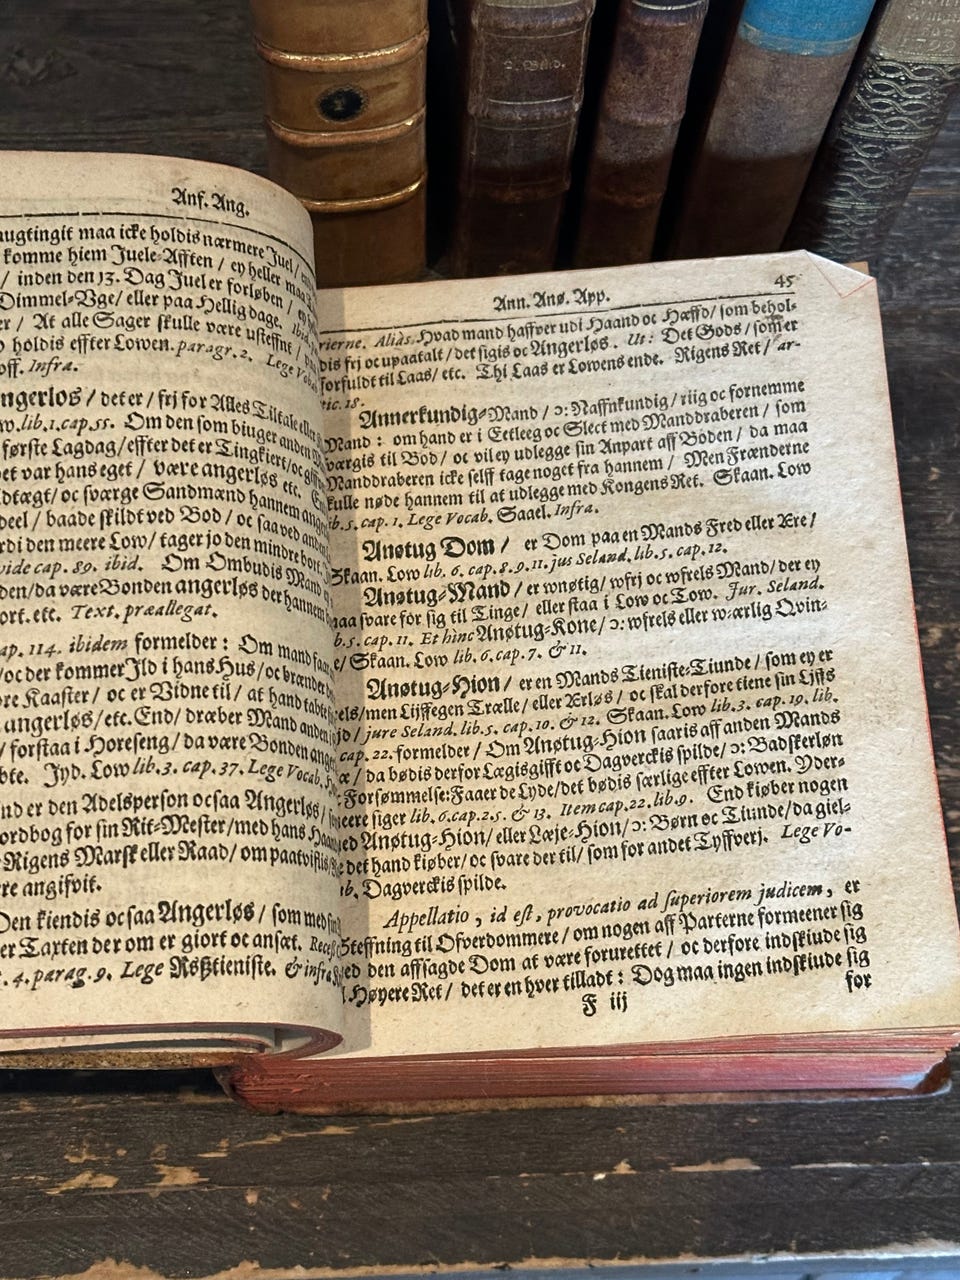 Anf. Ang.
augtingit maa icke holdis nærmere Juel /
komme hiem Juele-Afften / ey heller maa
/ inden den 13. Dag Juel er forløben /
Dimmel-Vge/ eller paa Hellig dage.
er / At alle Sager skulle være usteffnt /
holdis effter Lowen. paragr. 2. Lege Vocab.
off. Infra.
ngerløs / det er / fri for Alles Tiltale eller
lib. 1. cap. 55. Om den som biuger anden
første Lagdag/effter det er Tingkiert/oc
et var hans eget / være angerløs etc.
dtægt/ oc sværge Sandmænd hannem
deel / baade skildt ved Bod / oc saa ved anden
rdi den meere Low/ tager jo den mindre bort.
vide cap. 89. ibid. Om Ombudis Mand
den/da være Bonden angerløs der hannem
ort. etc. Text. præallegat.
ap. 114. ibidem formelder : Om mand faar
/oc der kommer Ild i hans Hus/ oc brænder
re Kaaster / oc er Vidne til / at hand tabte
angerløs/etc. End/ dræber Mand anden
/ forstaa i Horeseng/ da være Bonden
bte. Jyd. Low lib. 3. cap. 37. Lege Vocab.
nd er den Adelsperson ocsaa Angerløs /
ordbog for sin Rit-Mester/med hans
Rigens Marsk eller Raad/ om paatviflis
re angifvit.
Den kiendis ocsaa Angerløs / som med
er Taxten der om er giort oc ansæt.
. 4. parag. 9. Lege Roßtieniste. & infra
Ann. Anø. App. 45
rierne. Aliàs. Hvad mand haffver udi Haand oc Hæffd/ som behol-
dis frj oc upaatalt / det sigis oc Angerløs. Ut: Det Gods / som er
forfuldt til Laas/ etc. Thi Laas er Lowens ende. Rigens Ret / ar-
tic. 18.
Annerkundig-Mand / ɔ: Naffnkundig / riig oc fornemme
Mand : om hand er i Eetleeg oc Slect med Manddraberen / som
værgis til Bod / oc vil ey udlegge sin Anpart aff Böden / da maa
Manddraberen icke selff tage noget fra hannem / Men Frænderne
kulle nøde hannem til at udlegge med Kongens Ret. Skaan. Low
ib. 5. cap. 1. Lege Vocab. Saael. Infra.
Anøtug Dom / er Dom paa en Mands Fred eller Ære /
Skaan. Low lib. 6. cap. 8. 9. 11. jus Seland. lib. 5. cap. 12.
Anøtug-Mand / er wnøtig / wfrj oc wfrels Mand / der ey
maa svare for sig til Tinge / eller staa i Low oc Tow. Jur. Seland.
b. 5. cap. 11. Et hinc Anøtug-Kone / ɔ: wfrels eller wærlig Qvin-
e/ Skaan. Low lib. 6. cap. 7. & 11.
Anøtug-Hion / er en Mands Tieniste-Tiunde / som ey er
els/ men Lijffegen Trælle / eller Ærløs / oc skal derfore tiene sin Lijfs
jd / jure Seland. lib. 5. cap. 10. & 12. Skaan. Low lib. 3. cap. 19. lib.
cap. 22. formelder / Om Anøtug-Hion saaris aff anden Mands
/ da bødis derfor Lægisgifft oc Dagverckis spilde / ɔ: Badskerløn
Forsømmelse: Faaer de Lyde / det bødis særlige effter Lowen. Yder-
eere siger lib. 6. cap. 2. 5. & 13. Item cap. 22. lib. 9. End kiøber nogen
ed Anøtug-Hion / eller Læje-Hion / ɔ: Børn oc Tiunde / da giel-
e det hand kiøber / oc svare der til / som for andet Tyffverj. Lege Vo-
ab. Dagverckis spilde.
Appellatio , id est, provocatio ad superiorem judicem , er
Steffning til Ofverdommere / om nogen aff Parterne formeener sig
ved den affsagde Dom at være forurettet / oc derfore indskiude sig
Høyere Ret / det er en hver tilladt : Dog maa ingen indskiude sig
F iij for